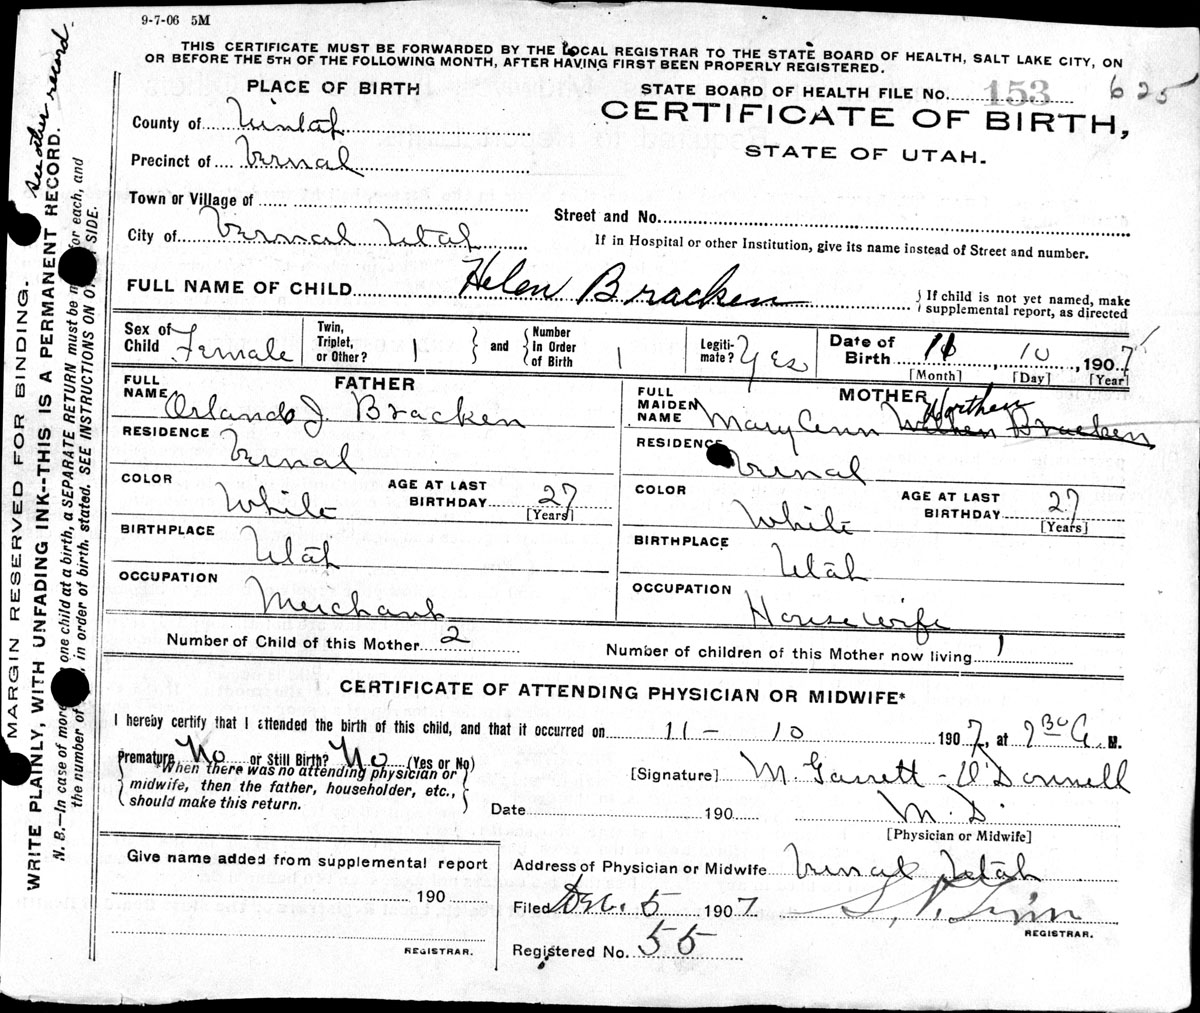 9-7-06 5M
THIS CERTIFICATE MUST BE FORWARDED BY THE LOCAL REGISTRAR TO THE STATE BOARD OF HEALTH, SALT LAKE CITY, ON
OR BEFORE THE 5TH OF THE FOLLOWING MONTH, AFTER HAVING FIRST BEEN PROPERLY REGISTERED.
PLACE OF BIRTH
STATE BOARD OF HEALTH FILE NO. 153 625
CERTIFICATE OF BIRTH,
STATE OF UTAH.
County of Uintah
Precinct of Vernal
Town or Village of
Street and No.
City of Vernal Utah
If in Hospital or other Institution, give its name instead of Street and number.
FULL NAME OF CHILD Helen Bracken
If child is not yet named, make
supplemental report, as directed
Sex of Child Female
Twin, Triplet, or Other? 1
and
Number In Order of Birth 1
Legitimate? Yes
Date of Birth 11 10, 1907
[Month] [Day] [Year]
FATHER
FULL NAME Orlando J. Bracken
RESIDENCE Vernal
COLOR White
AGE AT LAST BIRTHDAY 27
[Years]
BIRTHPLACE Utah
OCCUPATION Merchant
MOTHER
FULL MAIDEN NAME Mary Ann Worthen Bracken
RESIDENCE Vernal
COLOR White
AGE AT LAST BIRTHDAY 27
[Years]
BIRTHPLACE Utah
OCCUPATION Housewife
Number of Child of this Mother 2
Number of children of this Mother now living 1
CERTIFICATE OF ATTENDING PHYSICIAN OR MIDWIFE*
I hereby certify that I attended the birth of this child, and that it occurred on 11 - 10 1907, at 9 30 A. M.
Premature No or Still Birth? No (Yes or No)
*When there was no attending physician or
midwife, then the father, householder, etc.,
should make this return.
[Signature] M. Garrett - O'Donnell
Date 190 M. D.
[Physician or Midwife]
Give name added from supplemental report
190
REGISTRAR.
Address of Physician or Midwife Vernal Utah
Filed Dec. 5 1907
REGISTRAR.
Registered No. 55
See other record
MARGIN RESERVED FOR BINDING.
WRITE PLAINLY, WITH UNFADING INK--THIS IS A PERMANENT RECORD.
N. B.—In case of more one child at a birth, a SEPARATE RETURN must be for each, and
the number of, in order of birth, stated. SEE INSTRUCTIONS ON SIDE.